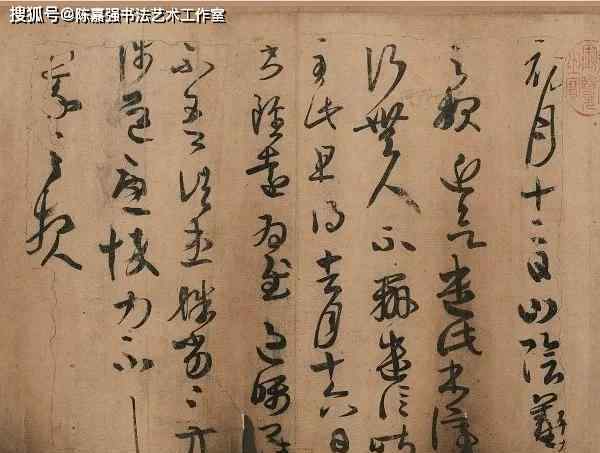 搜狐号@陈嘉强书法艺术工作室
初月十二日山陰羲
之報近欲遣此書停
行無人不辦遣信昨
至此且得去月十六日
書雖遠為慰過囑卿
不吾諸患殊劣々方
涉道憂悴力不
羲之報